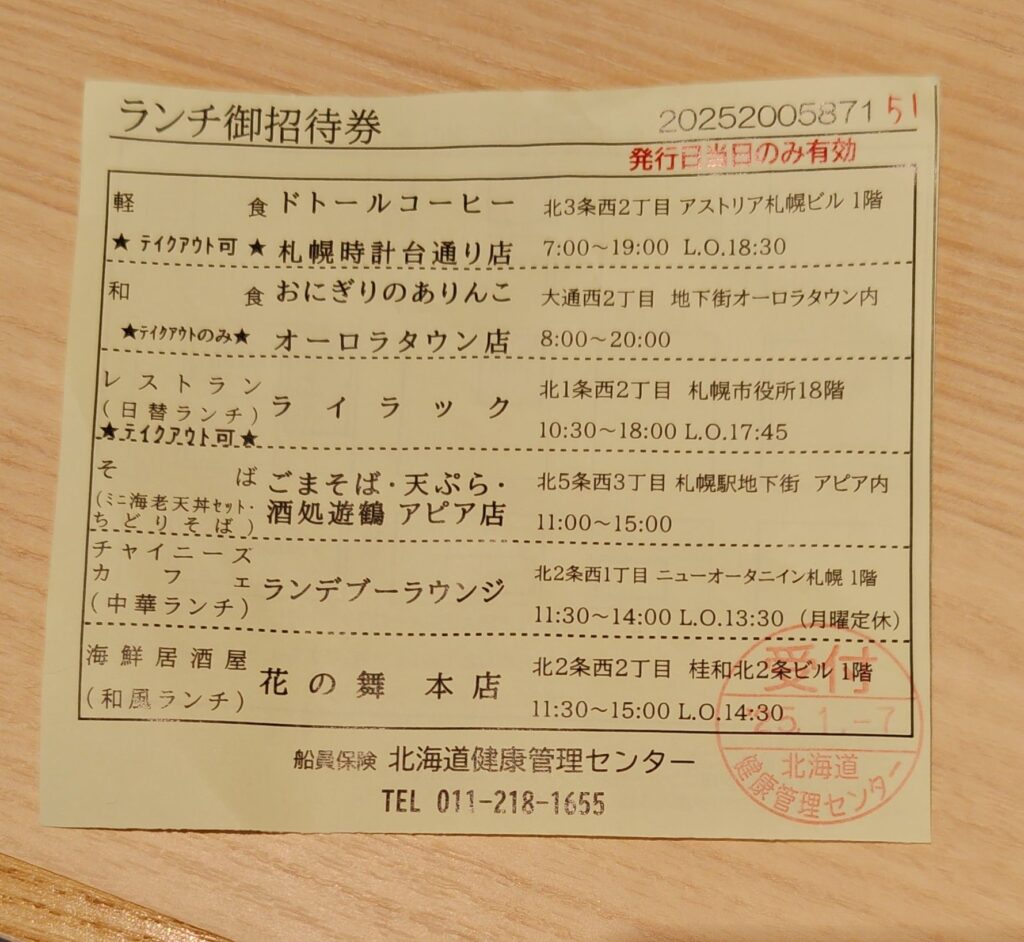 ランチ御招待券
20252005871 51
発行日当日のみ有効
軽食 ドトールコーヒー 北3条西2丁目 アストリア札幌ビル 1階
★テイクアウト可★ 札幌時計台通り店 7:00～19:00 L.O.18:30
和食 おにぎりのありんこ 大通西2丁目 地下街オーロラタウン内
★テイクアウトのみ★ オーロラタウン店 8:00～20:00
レストラン
(日替ランチ) ライラック 北1条西2丁目 札幌市役所18階
★テイクアウト可★ 10:30～18:00 L.O.17:45
そば ごまそば・天ぷら・ 北5条西3丁目 札幌駅地下街 アピア内
(ミニ海老天丼セット・ 酒処遊鶴 アピア店 11:00～15:00
ちどりそば)
チャイニーズ
カフェ ランデブーラウンジ 北2条西1丁目 ニューオータニイン札幌 1階
(中華ランチ) 11:30～14:00 L.O.13:30 (月曜定休)
海鮮居酒屋 花の舞 本店 北2条西2丁目 桂和北2条ビル 1階
(和風ランチ) 11:30～15:00 L.O.14:30
船員保険 北海道健康管理センター
TEL 011-218-1655
受付
25.1.-7
北海道
健康管理センター